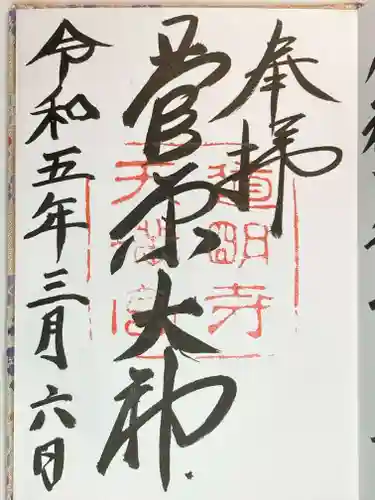 奉拝
道明寺
天満宮
菅原大神
令和五年三月六日